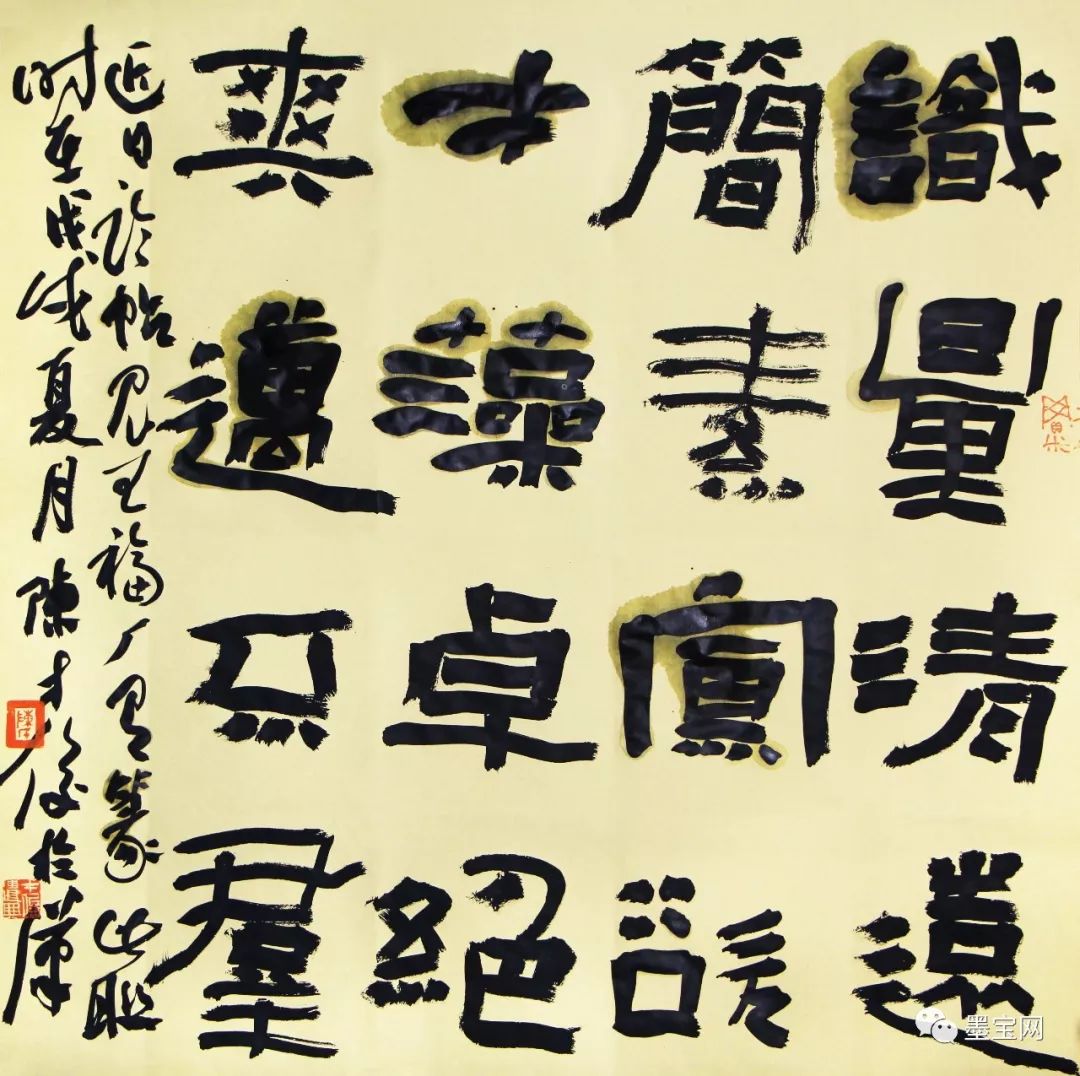 識量清遠
簡素寡欲
才藻卓絕
爽邁不羣
近日臨帖見王福厂有篆此聯
時在戊戌夏月陳才俊於漢
墨宝网